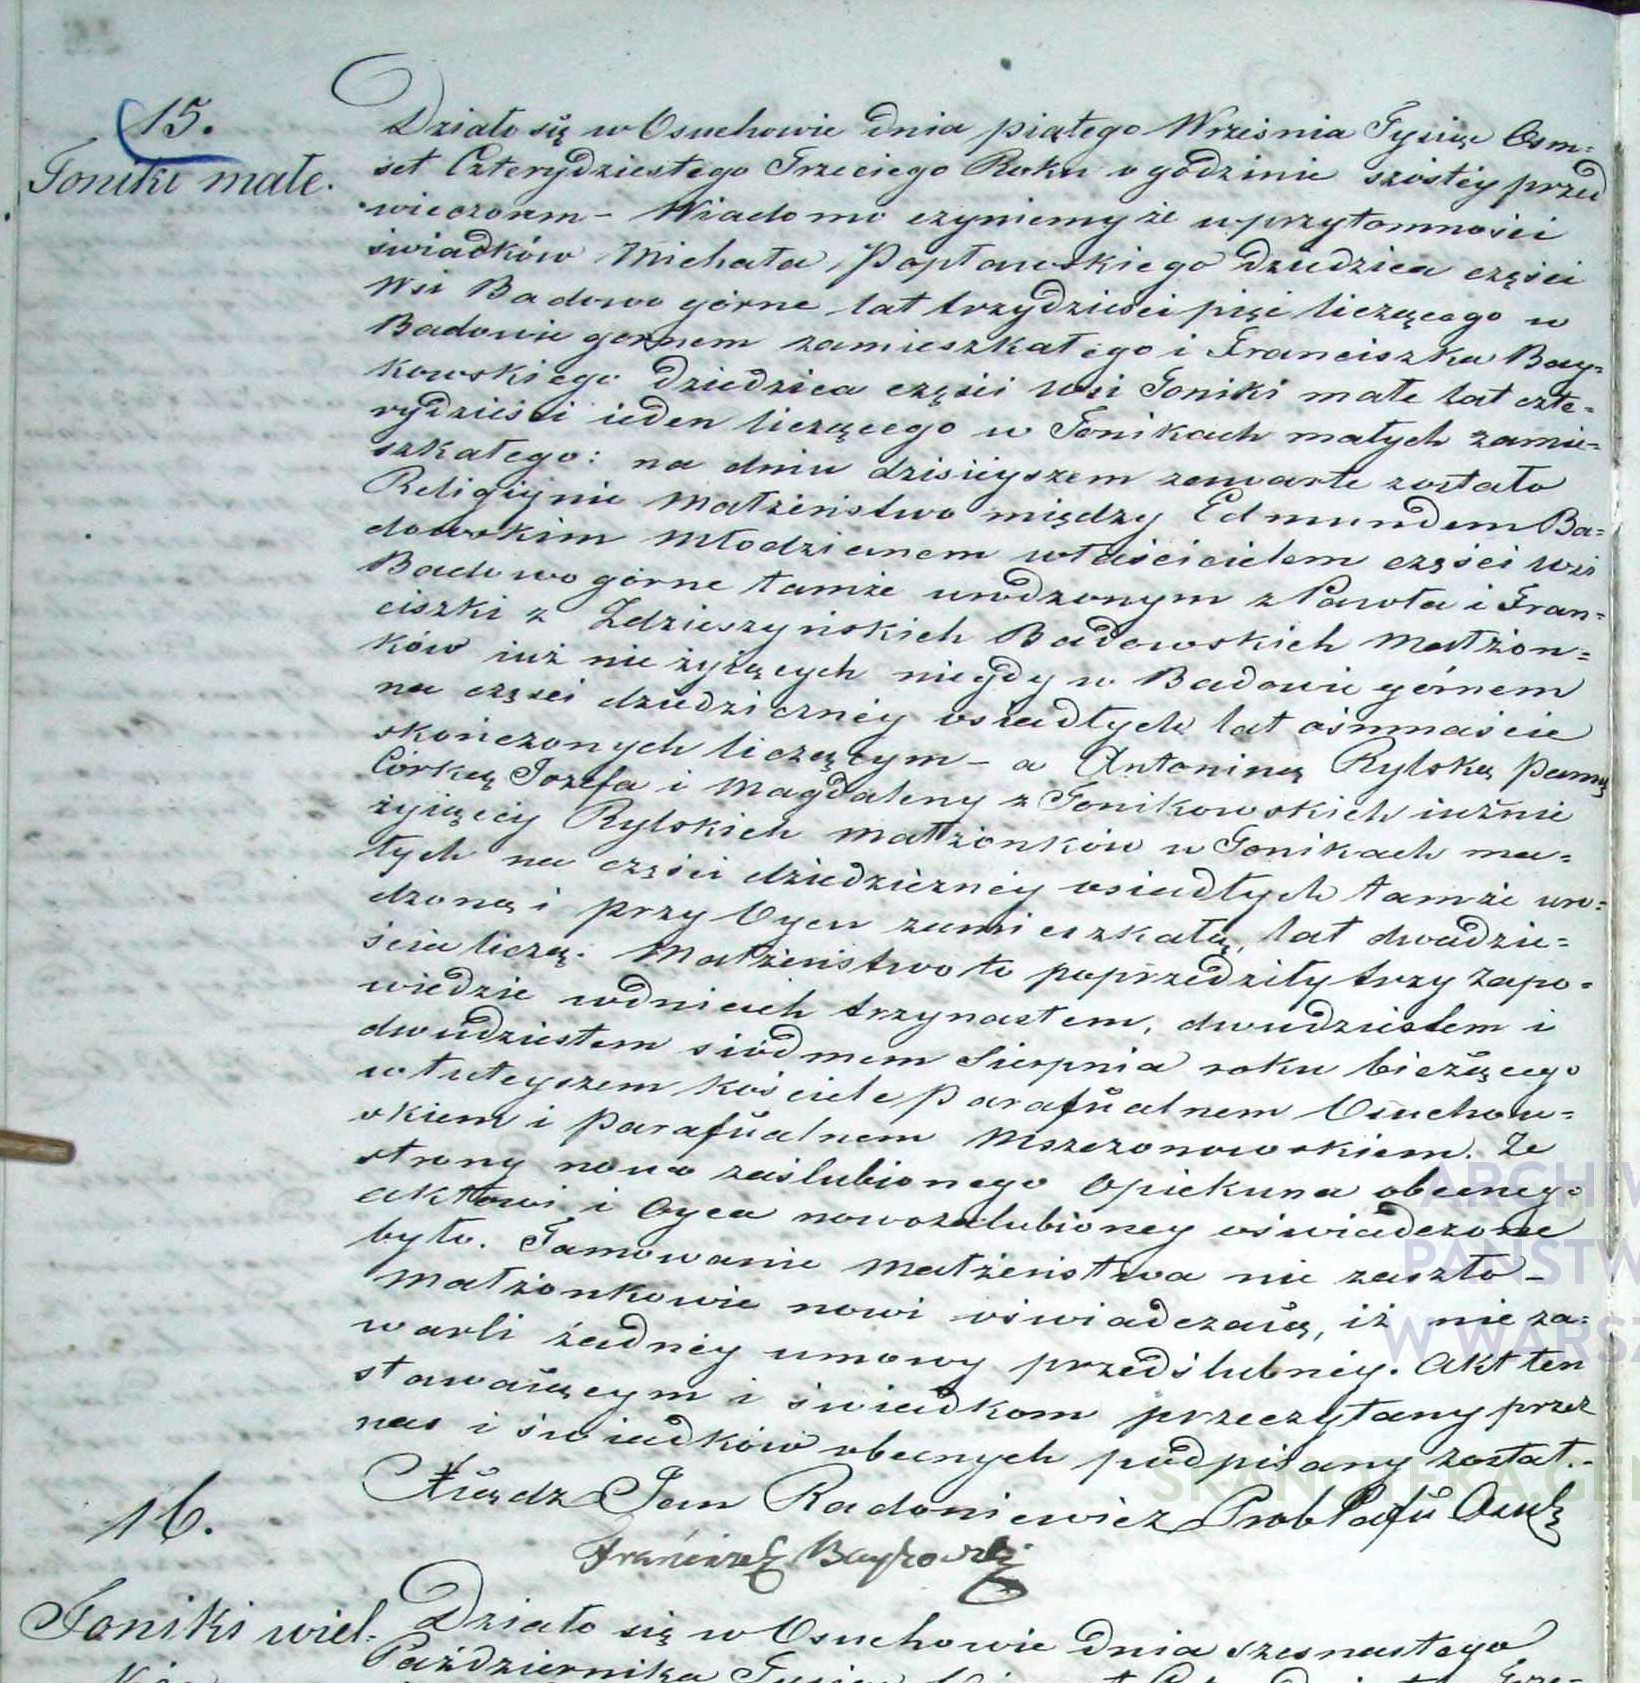 15.
Toniki małe.
Działo się w Osuchowie dnia piątego Września Tysiąc Osm=
set Czterydziestego Trzeciego Roku o godzinie szóstéy przed
wieczorem – Wiadomo czyniemy że w przytomności
świadków Michała Popławskiego dziedzica części
Wsi Badowo górne lat trzydzieści pięć liczącego w
Badowie gornem zamieszkałego i Franciszka Bay=
kowskiego dziedzica części wsi Toniki małe lat czte=
rydzieści ieden liczącego w Tonikach małych zamie=
szkałego: na dniu dzisieyszem zawarte zostało
Religiynie Małżeństwo między Edmundem Ba=
dowskim Młodzianem właścicielem części wsi
Badowo górne tamże urodzonym z Pawła i Fran=
ciszki z Zdzieszyńskich Badowskich Małżon=
ków iuż nie żyiących niegdy w Badowie górnem
na części dziedzicznéy osiadłych lat ośmnaście
skończonych liczącym – a Antoniną Rylską Panną
Córką Jozefa i Magdaleny z Tonikowskich iuż nie
żyiącéy Rylskich Małżonków w Tonikach ma=
łych na części dziedzicznéy osiadłych tamże uro=
dzoną i przy Oycu zamieszkałą, lat dwadzie=
ścia liczą. Małżeństwo to poprzedziły trzy zapo=
wiedzie w dniach trzynastem, dwudziestem i
dwudziestem siódmem Sierpnia roku bieżącego
w tuteyszem kościele Parafialnem Osuchow=
skiem i Parafialnem Mszczonowskiem. Ze
strony nowo zaślubionego Opiekuna obecnego
aktowi i Oyca nowozaślubioney oświadczone
było. Tamowanie Małżeństwa nie zaszło –
Małżonkowie nowi oświadczaią, iż nie za=
warli żadnéy umowy przedślubnéy. Akt ten
stawaiącym i świadkom przeczytany przez
nas i świadków obecnych podpisany został.-
Xiądz Jan Radoniewicz Prob Pafii Osuch
Franciszek Baykowski
16.
Toniki wiel=
Działo się w Osuchowie dnia szesnastego
Października
ARCHIW
PAŃSTW
W WARSZ
SKANOTEKA.GEN